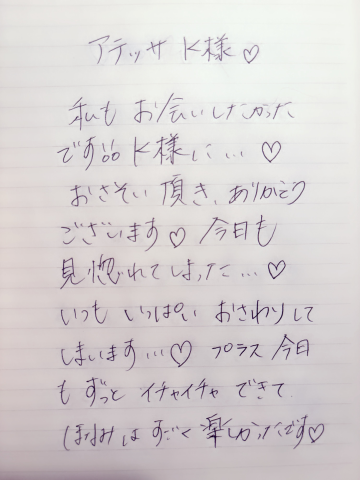 アテッサ K様♡
私も お会いしたかった
です K様に…♡
おさそい 頂き、ありがとう
ございます♡ 今日も
見惚れてしまった…♡
いつも いっぱい おさわりして
しまいます…♡ プラス 今日
も ずっと イチャイチャ できて
は すごく 楽しかったです♡